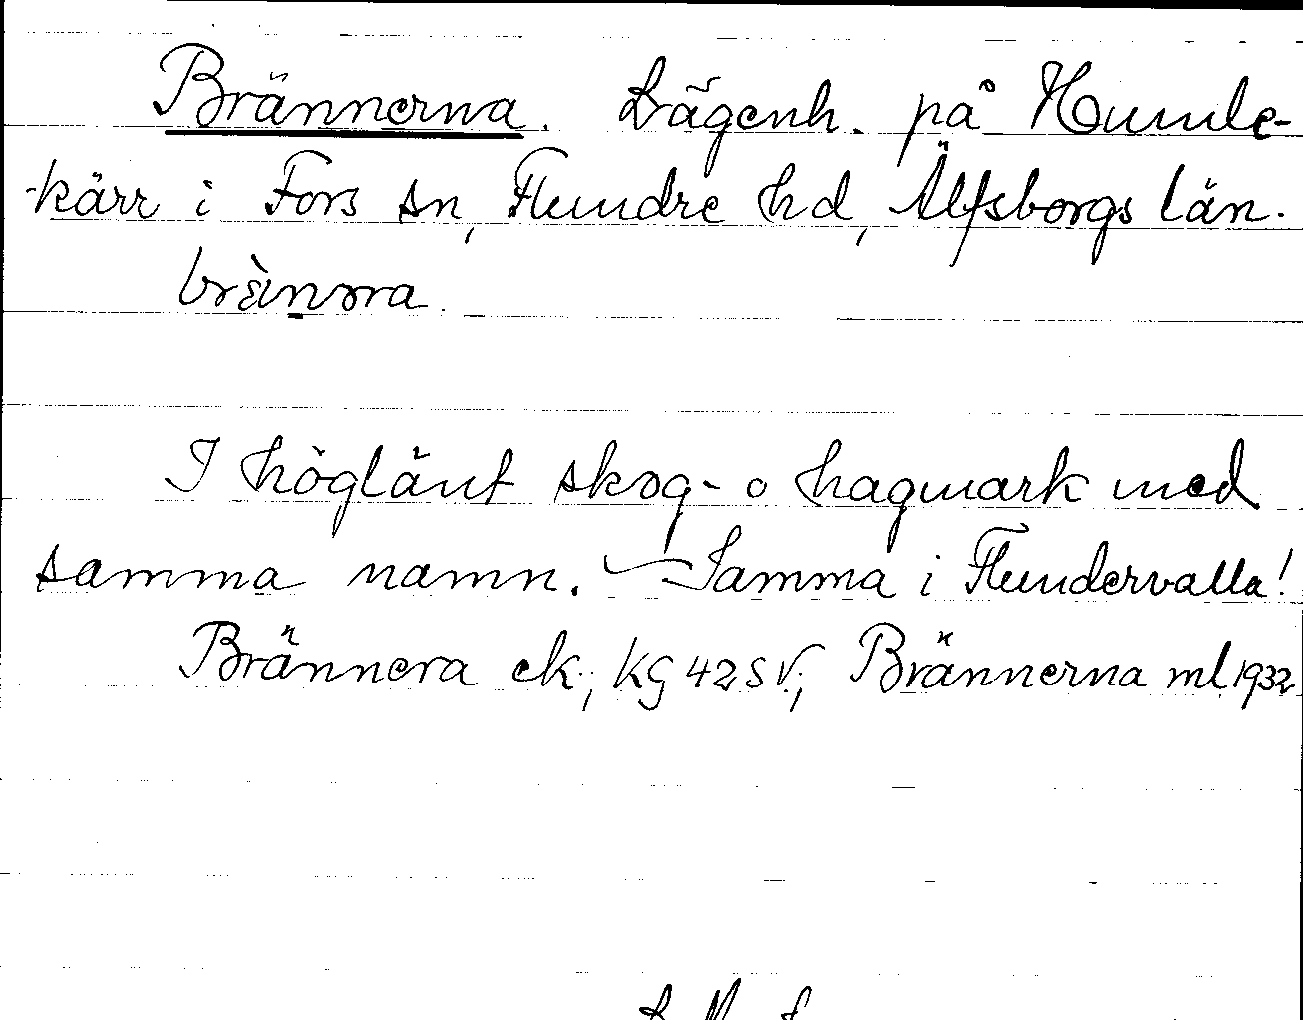 Brännerna. Lägenh. på Humle-
kärr i Fors sn, Flundre hd, Älfsborgs län.
brä̀nɷra.
I höglänt skog- o hagmark med
samma namn. — Samma i Flundervalla!
Brännera ek; KG 42 SV; Brännerna ml 1932